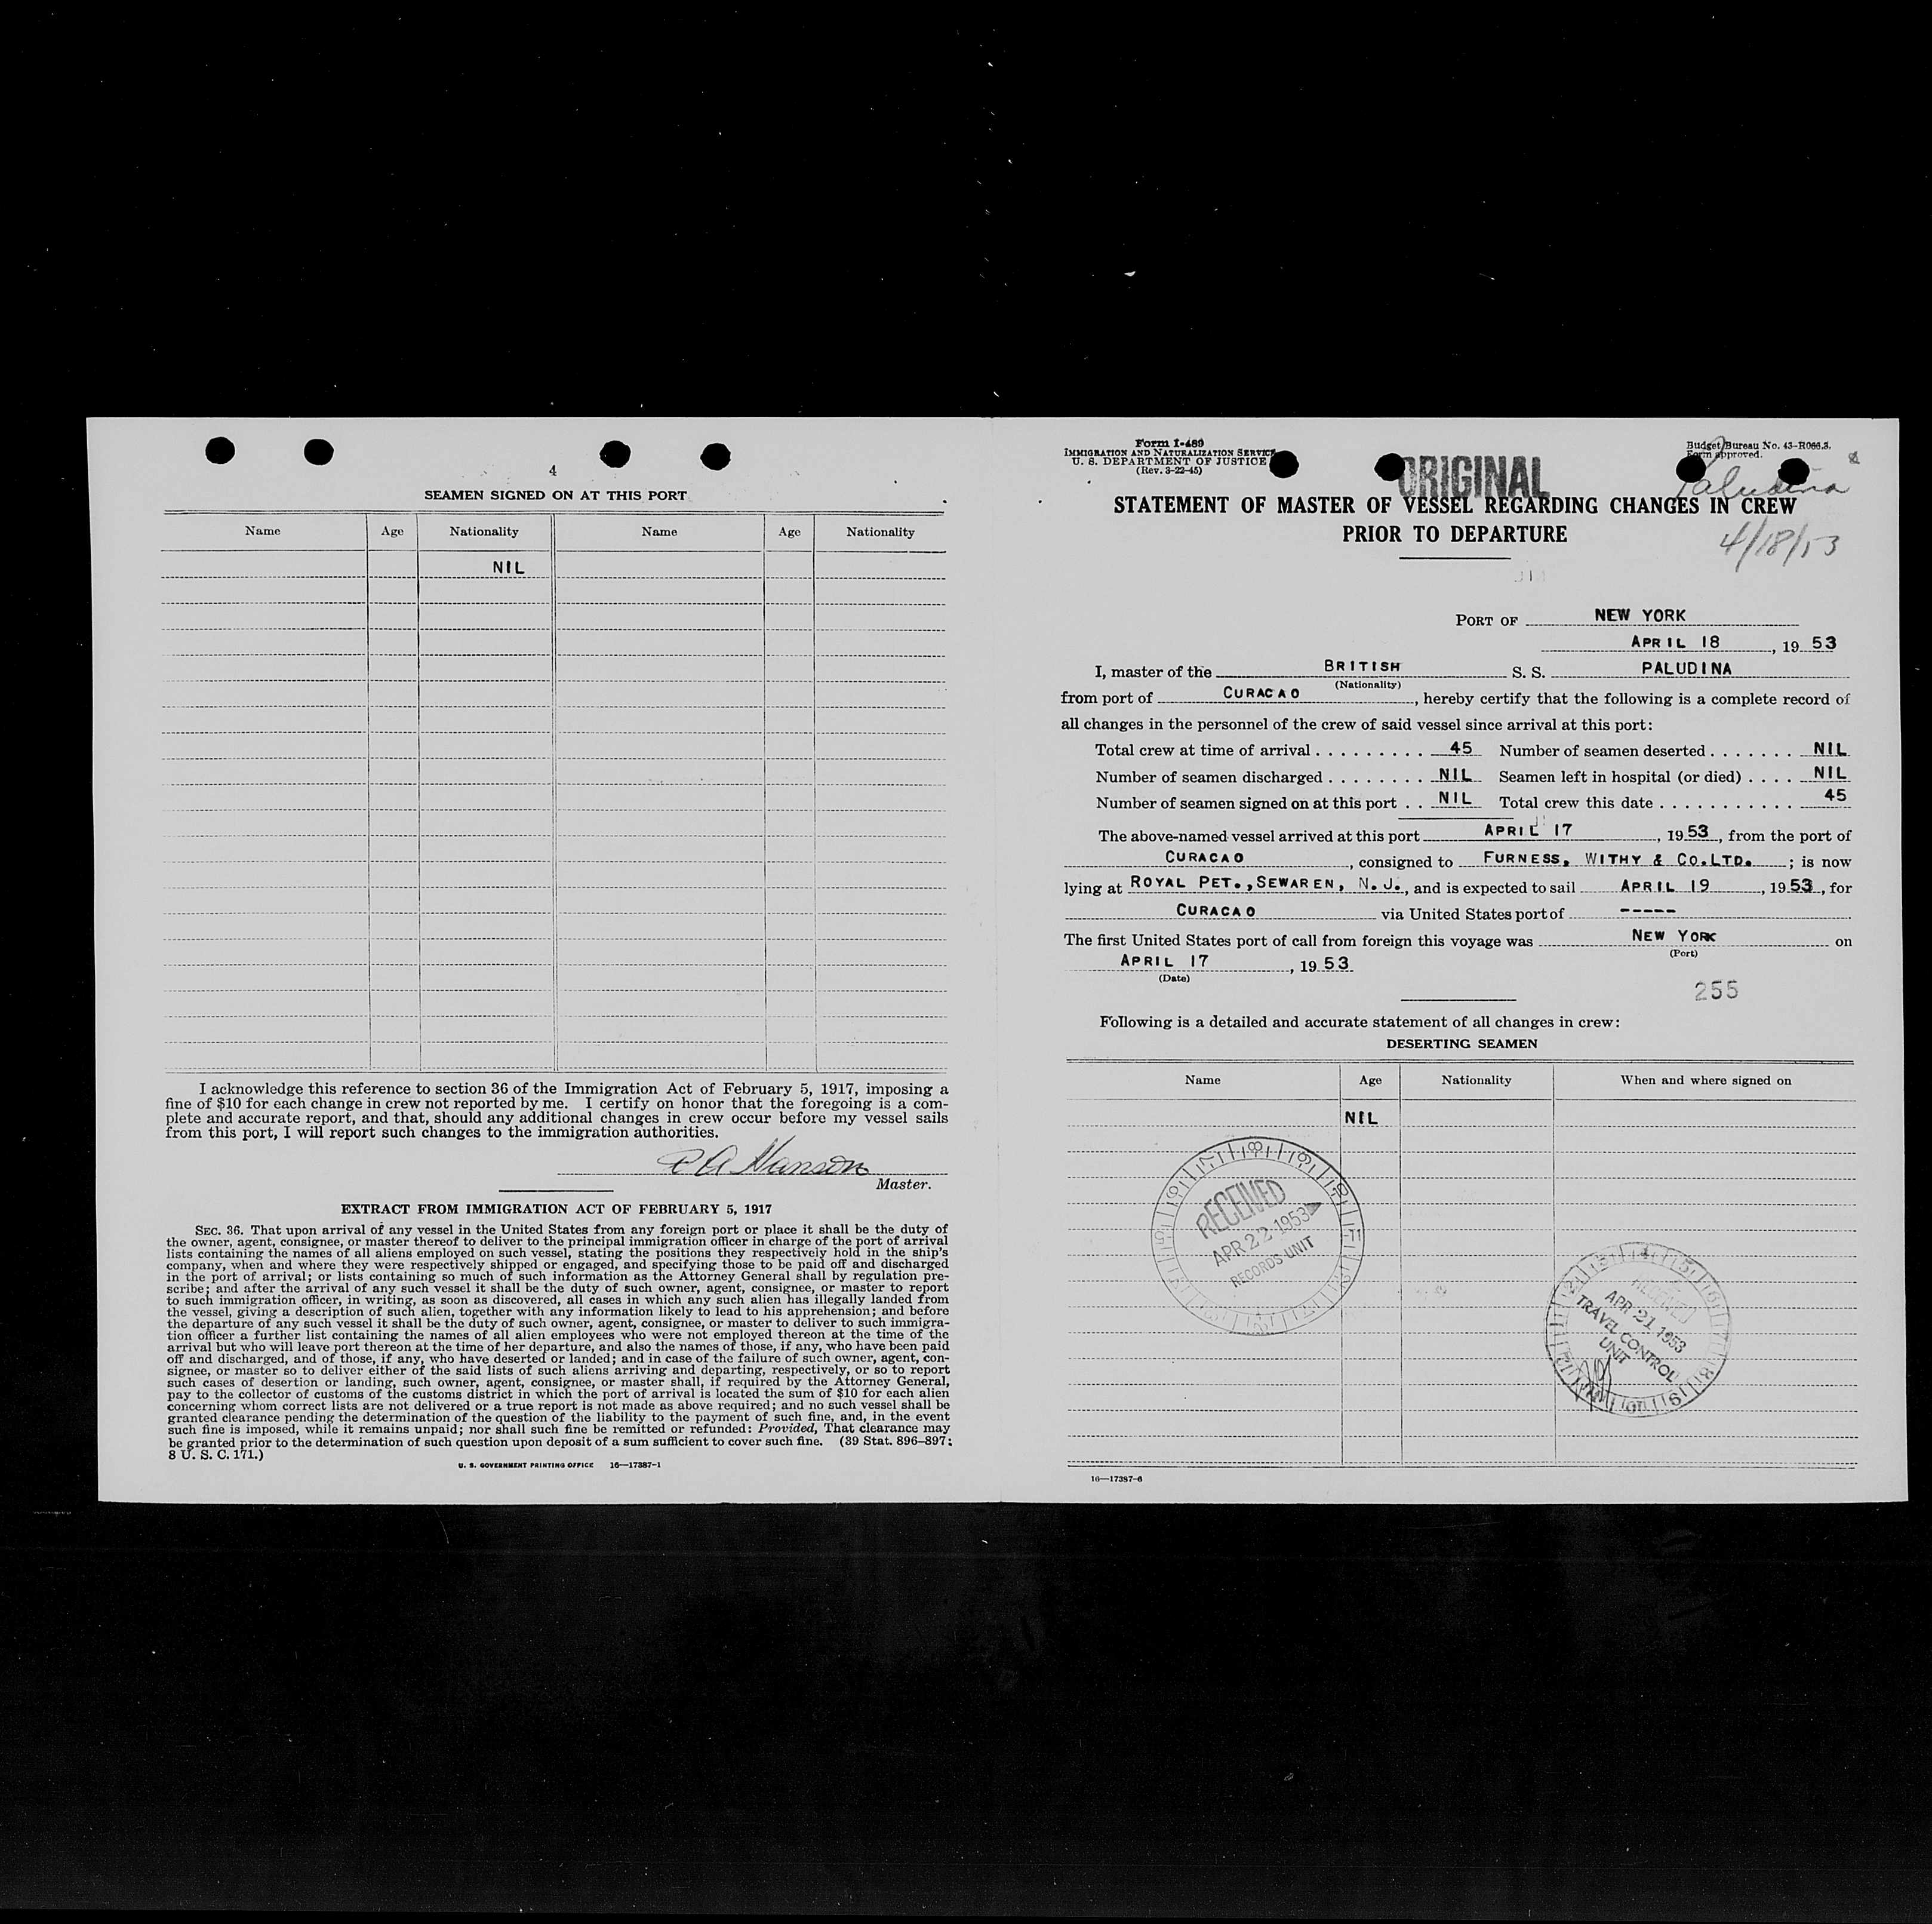 4
SEAMEN SIGNED ON AT THIS PORT
Name Age Nationality Name Age Nationality
NIL
I acknowledge this reference to section 36 of the Immigration Act of February 5, 1917, imposing a
fine of $10 for each change in crew not reported by me. I certify on honor that the foregoing is a com-
plete and accurate report, and that, should any additional changes in crew occur before my vessel sails
from this port, I will report such changes to the immigration authorities.
Hanson
Master.
EXTRACT FROM IMMIGRATION ACT OF FEBRUARY 5, 1917
SEC. 36. That upon arrival of any vessel in the United States from any foreign port or place it shall be the duty of
the owner, agent, consignee, or master thereof to deliver to the principal immigration officer in charge of the port of arrival
lists containing the names of all aliens employed on such vessel, stating the positions they respectively hold in the ship's
company, when and where they were respectively shipped or engaged, and specifying those to be paid off and discharged
in the port of arrival; or lists containing so much of such information as the Attorney General shall by regulation pre-
scribe; and after the arrival of any such vessel it shall be the duty of such owner, agent, consignee, or master to report
to such immigration officer, in writing, as soon as discovered, all cases in which any such alien has illegally landed from
the vessel, giving a description of such alien, together with any information likely to lead to his apprehension; and before
the departure of any such vessel it shall be the duty of such owner, agent, consignee, or master to deliver to such immigra-
tion officer a further list containing the names of all alien employees who were not employed thereon at the time of the
arrival but who will leave port thereon at the time of her departure, and also the names of those, if any, who have been paid
off and discharged, and of those, if any, who have deserted or landed; and in case of the failure of such owner, agent, con-
signee, or master so to deliver either of the said lists of such aliens arriving and departing, respectively, or so to report
such cases of desertion or landing, such owner, agent, consignee, or master shall, if required by the Attorney General,
pay to the collector of customs of the customs district in which the port of arrival is located the sum of $10 for each alien
concerning whom correct lists are not delivered or a true report is not made as above required; and no such vessel shall be
granted clearance pending the determination of the question of the liability to the payment of such fine, and, in the event
such fine is imposed, while it remains unpaid; nor shall such fine be remitted or refunded: Provided, That clearance may
be granted prior to the determination of such question upon deposit of a sum sufficient to cover such fine. (39 Stat. 896–897;
8 U. S. C. 171.)
U. S. GOVERNMENT PRINTING OFFICE 16—17387-1
Form I-489
IMMIGRATION AND NATURALIZATION SERVICE
U. S. DEPARTMENT OF JUSTICE
(Rev. 3-22-45)
Budget Bureau No. 43-R066.3.
Form approved.
ORIGINAL
Paludina
STATEMENT OF MASTER OF VESSEL REGARDING CHANGES IN CREW
PRIOR TO DEPARTURE
4/18/53
PORT OF NEW YORK
APRIL 18, 1953
I, master of the BRITISH S. S. PALUDINA
(Nationality)
from port of CURACAO, hereby certify that the following is a complete record of
all changes in the personnel of the crew of said vessel since arrival at this port:
Total crew at time of arrival . . . . . . . . . 45 Number of seamen deserted . . . . . . . NIL
Number of seamen discharged . . . . . . . . NIL Seamen left in hospital (or died) . . . . NIL
Number of seamen signed on at this port . . NIL Total crew this date . . . . . . . . . . . 45
The above-named vessel arrived at this port APRIL 17, 1953, from the port of
CURACAO, consigned to FURNESS, WITHY & CO.LTD.; is now
lying at ROYAL PET., SEWAREN, N. J., and is expected to sail APRIL 19, 1953, for
CURACAO via United States port of -----
The first United States port of call from foreign this voyage was NEW YORK on
(Port)
APRIL 17, 1953
(Date)
255
Following is a detailed and accurate statement of all changes in crew:
DESERTING SEAMEN
Name Age Nationality When and where signed on
NIL
RECEIVED
APR 22 1953
RECORDS UNIT
RECEIVED
APR 21 1953
TRAVEL CONTROL
UNIT
16—17387-6